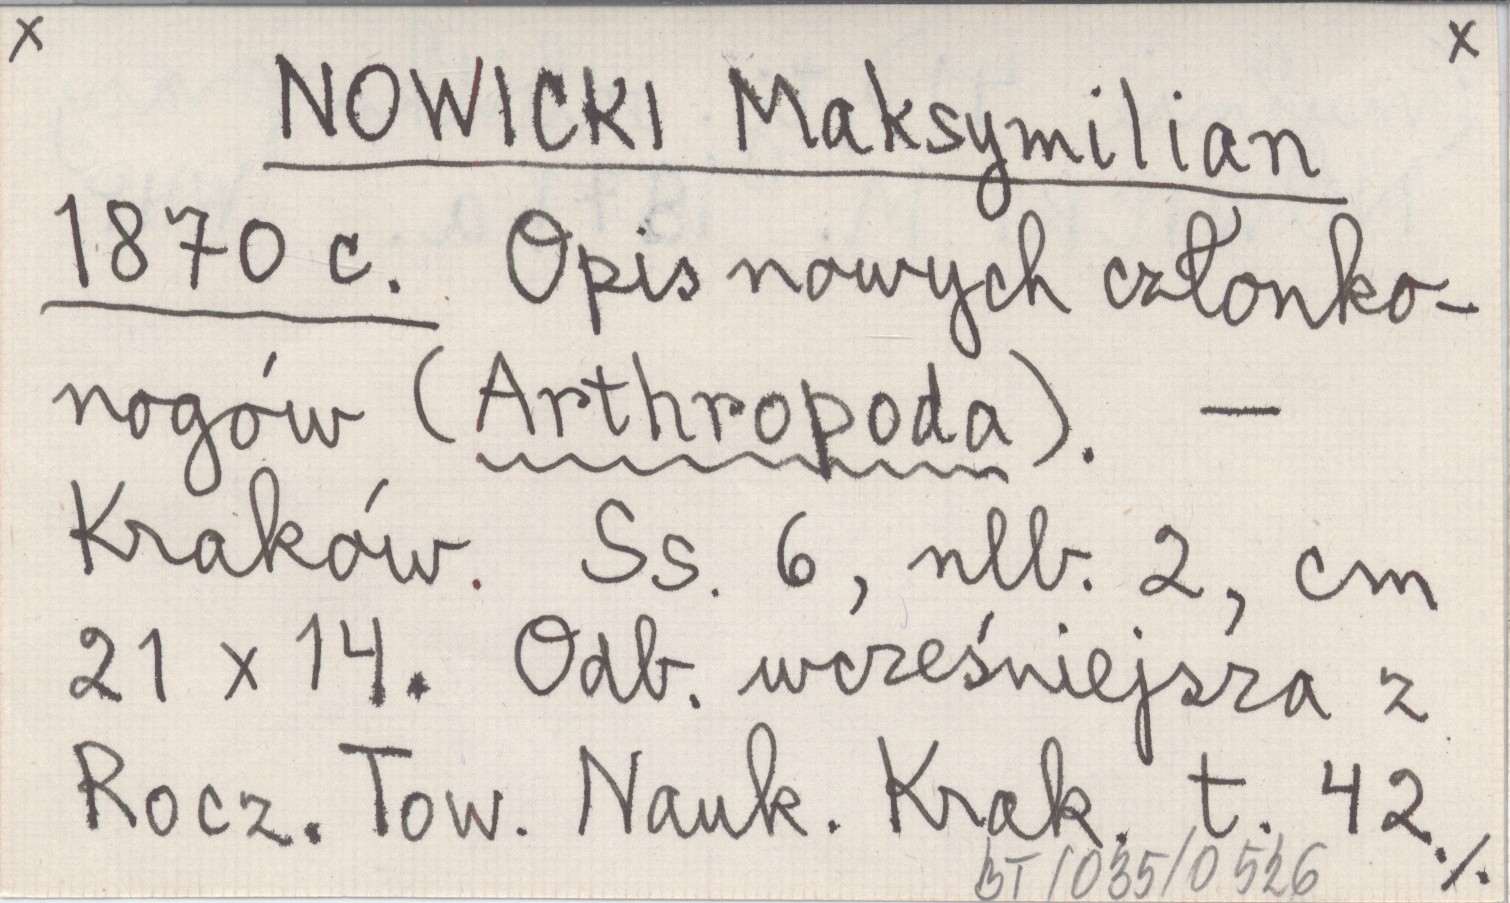 x x
NOWICKI Maksymilian
1870 c. Opis nowych członko-
nogów (Arthropoda). —
Kraków. Ss. 6, nlb. 2, cm
21 x 14. Odb. wcześniejsza z
Rocz. Tow. Nauk. Krak. t. 42.
BT/035/0526 ./.